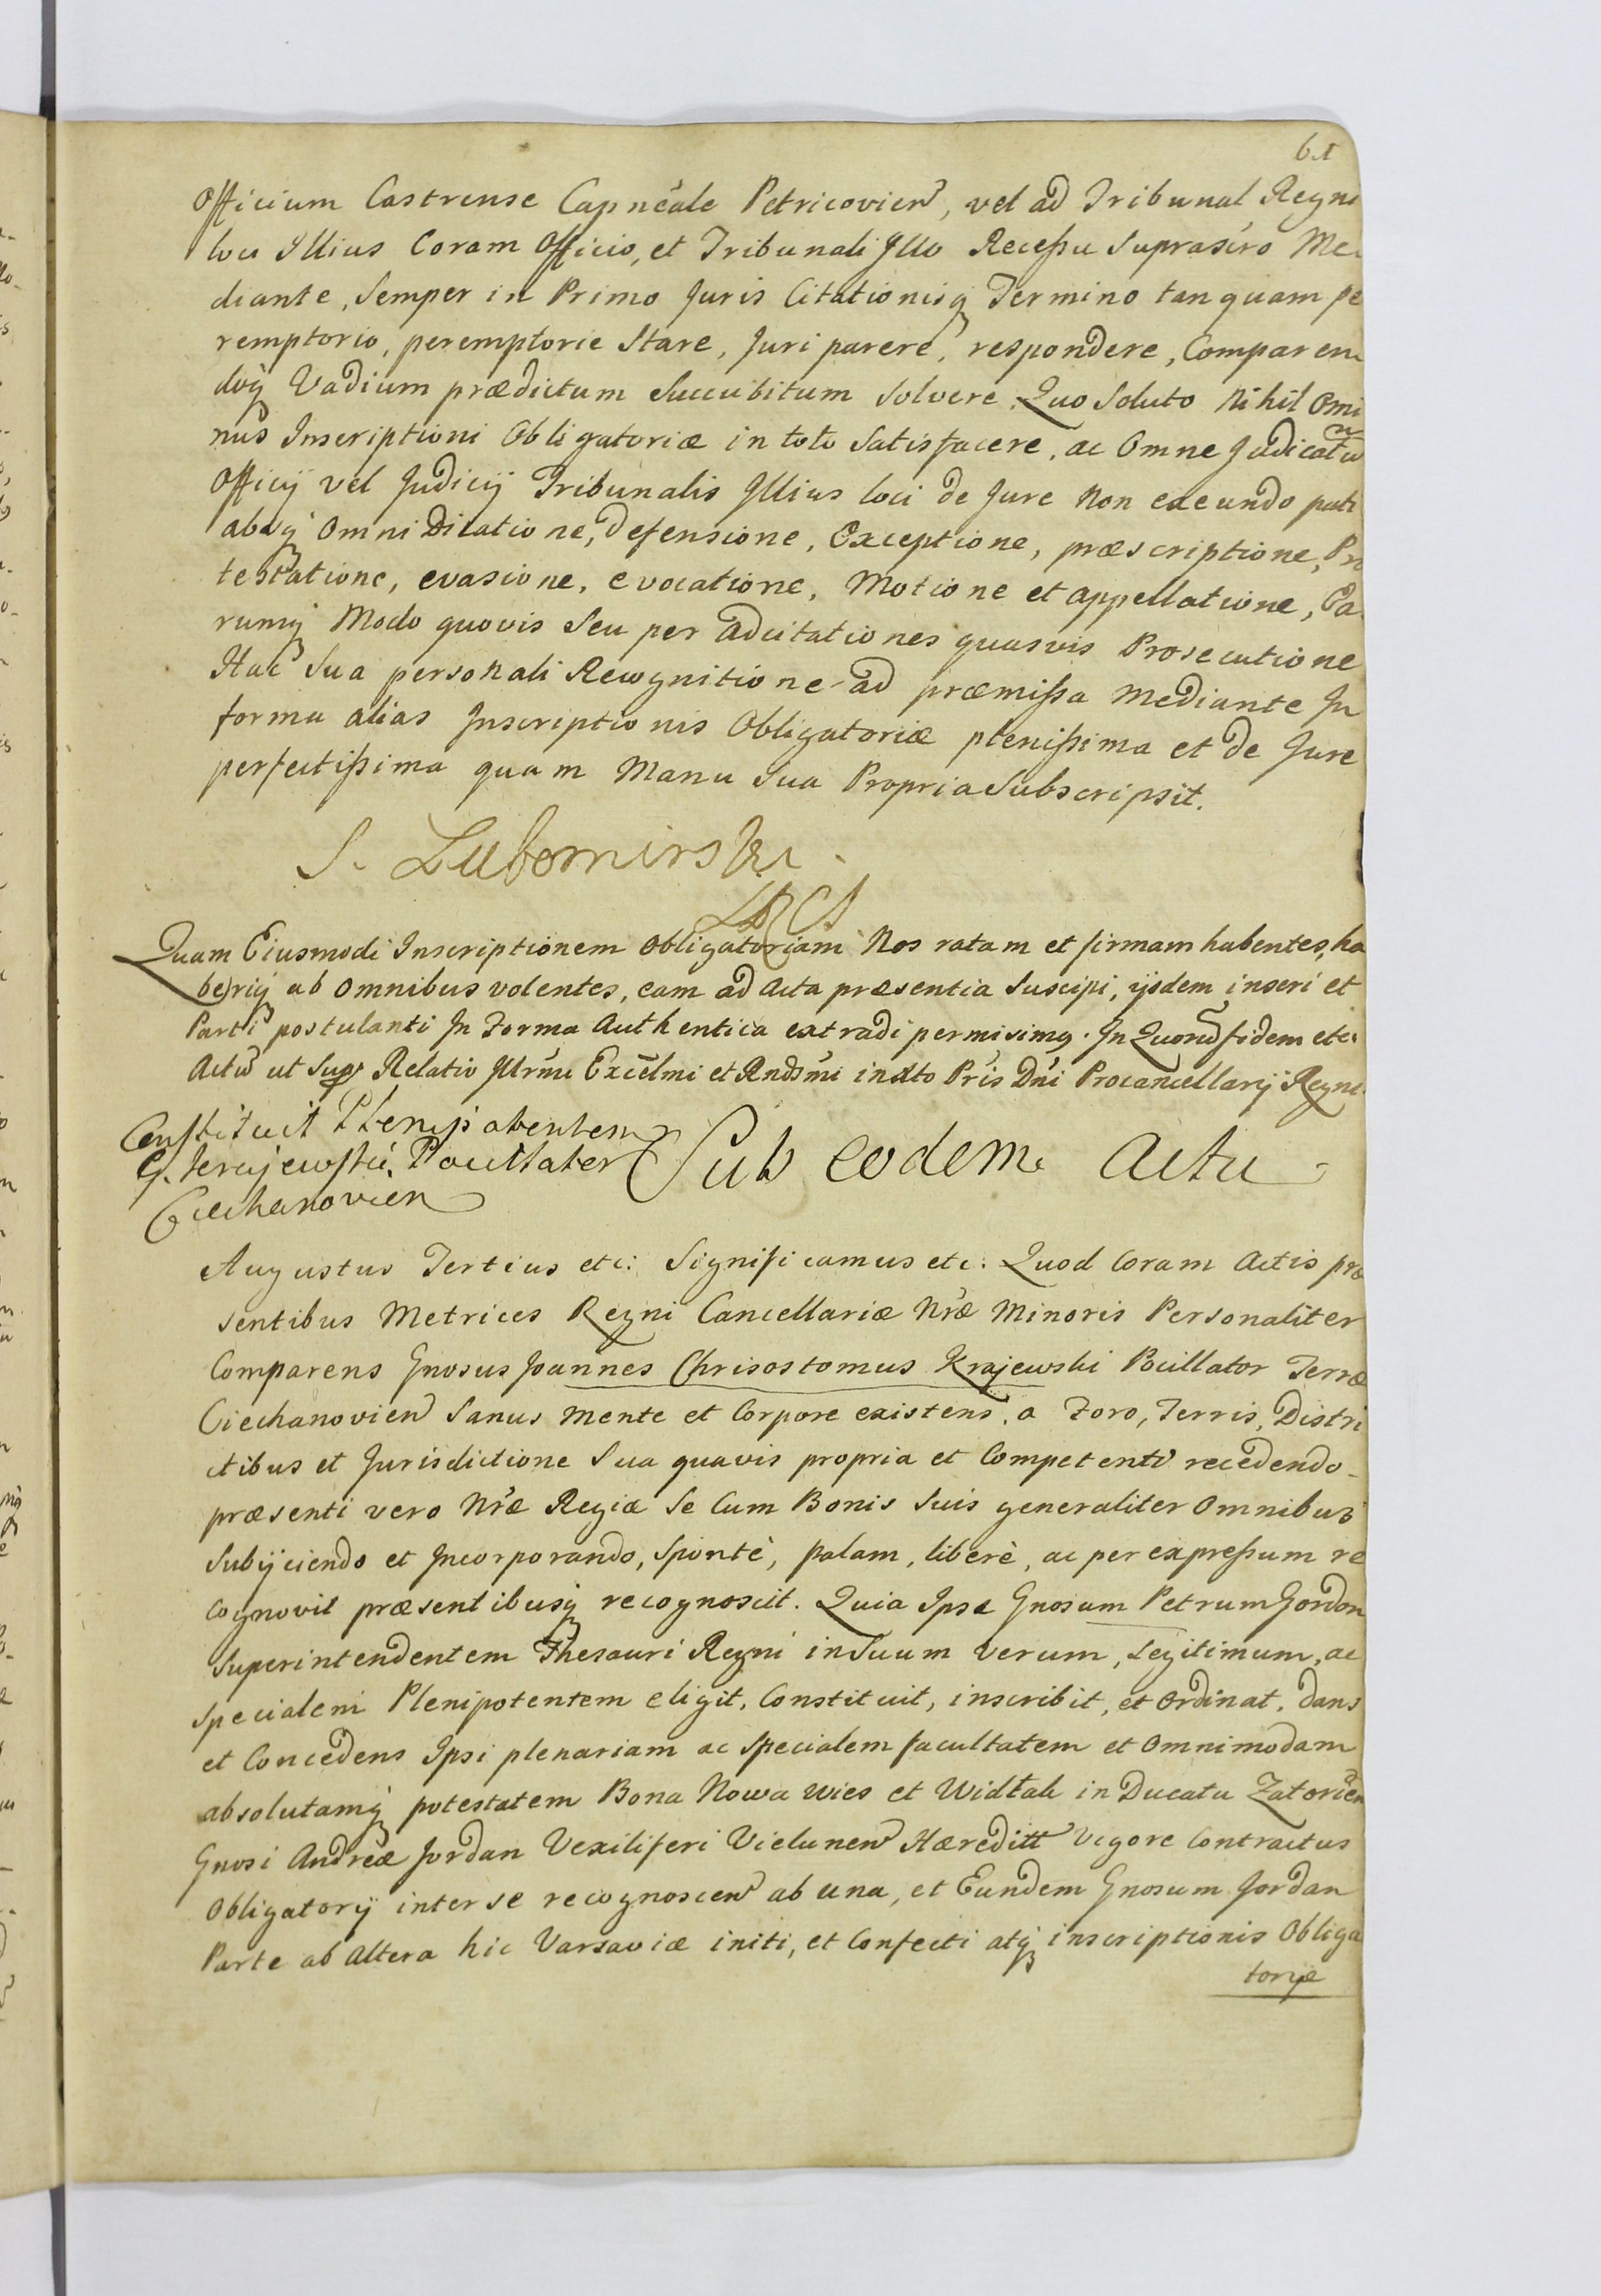 61
Officium Castrense Capneale Petricovien, vel ad Tribunal Regni
loci Illius Coram Officio, et Tribunali Illo Recessu Suprascro Me
diante, Semper in Primo Juris Citationisq Termino tanquam pe
remptorio, peremptorie Stare, Juri parere, respondere, Comparen
doq Vadium prædictum Succubitum Solvere. Quo Soluto Nihil Omi
nus Inscriptioni Obligatoriæ in toto Satisfacere, ac Omne Judicatu
Officij vel Judicij Tribunalis Illius loci de Jure Non exeundo pati
absq Omni Dilatione, defensione, Exceptione, præscriptione, Pro
testatione, evasione, evocatione, Motione et appellatione, Ea
rumq Modo quovis Seu per adcitationes quasvis Prosecutione
Hac Sua personali Recognitione ad præmissa Mediante In
forma alias Inscriptionis Obligatoriæ plenissima et de Jure
perfectissima quam Manu Sua Propria Subscripsit.
S. Lubomirski
Quam Eiusmodi Inscriptionem Obligatoriam Nos ratam et firmam habentes, ha
beriq ab Omnibus volentes, eam ad Acta præsentia Suscipi, ijsdem inseri et
Parti postulanti In Forma Authentica extradi permisimq. In Quoru fidem etc.
Actu ut Supr Relatio Illrmi Excelmi et Rndsmi in Xto Pris Dni Procancellarij Regni.
Constituit Plenipotentem
G. Krajewski, Pocillator
Ciechanovien
Sub eodem Actu
Augustus Tertius etc: Significamus etc: Quod Coram Actis præ
sentibus Metrices Regni Cancellariæ Nræ Minoris Personaliter
Comparens Gnosus Joannes Chrisostomus Krajewski Pocillator Terræ
Ciechanovien Sanus Mente et Corpore existens, a Foro, Terris, Distri
ctibus et Jurisdictione Sua quavis propria et Competenti recedendo
præsenti vero Nræ Regiæ Se Cum Bonis Suis generaliter Omnibus
Subijciendo et Incorporando, Spontè, palam, liberè, ac per expressum re
cognovit præsentibusq recognoscit. Quia Ipse Gnosum Petrum Gordon
Superintendentem Thesauri Regni in Suum Verum, Legitimum, ac
Specialem Plenipotentem eligit, Constituit, inscribit, et Ordinat. Dans
et Concedens Ipsi plenariam ac Specialem facultatem et Omnimodam
absolutamq potestatem Bona Nowa wies et Widtah in Ducatu Zatorien
Gnosi Andreæ Jordan Vexiliferi Vielunen Hæreditt Vigore Contractus
Obligatorij inter se recognoscen ab una, et Eundem Gnosum Jordan
Parte ab Altera hic Varsaviæ initi, et Confecti atq inscriptionis Obliga
toriæ